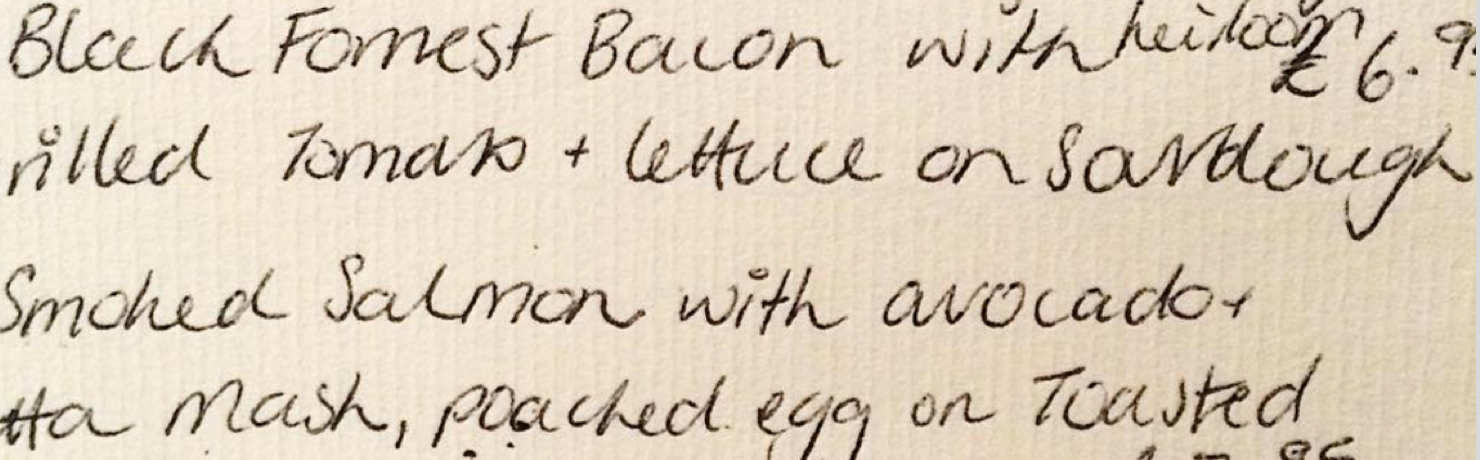 Black Forrest Bacon with heirloom £6.9
rilled Tomato + lettuce on Sourdough
Smoked Salmon with avocado +
tta Mash, poached egg on Toasted